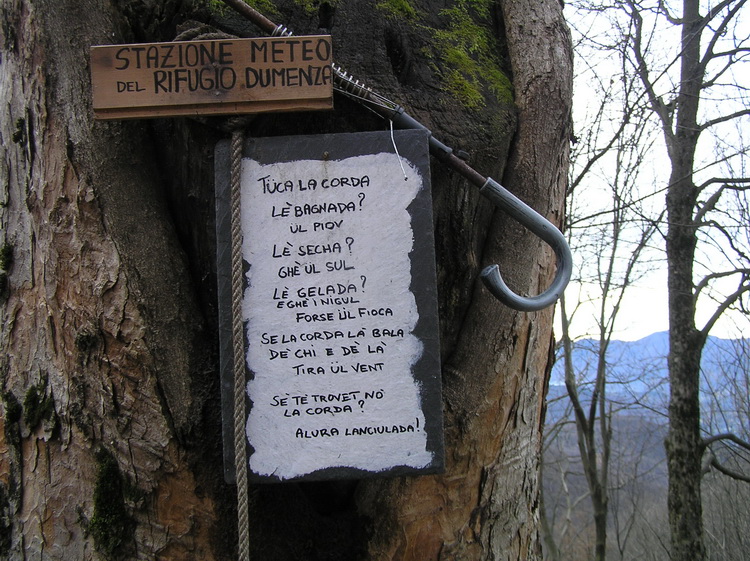 STAZIONE METEO
DEL RIFUGIO DUMENZA
TÜCA LA CORDA
LÈ BAGNADA?
ÜL PIOV
LÈ SECHA?
GHÈ ÜL SUL
LÈ GELADA?
E GHÈ I NIGUL
FORSE ÜL FIOCA
SE LA CORDA LA BALA
DE CHÌ E DÈ LÀ
TIRA ÜL VENT
SÈ TE TROVET NÒ
LA CORDA?
ALURA LANCIULADA!